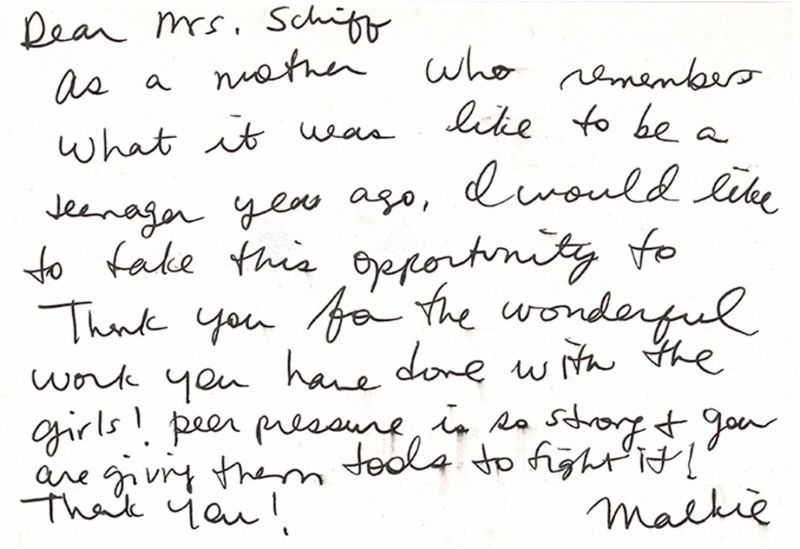 Dear Mrs. Schiff
as a mother who remembers
what it was like to be a
teenager years ago, I would like
to take this opportunity to
Thank you for the wonderful
work you have done with the
girls! peer pressure is so strong + you
are giving them tools to fight it!
Thank You! Malkie